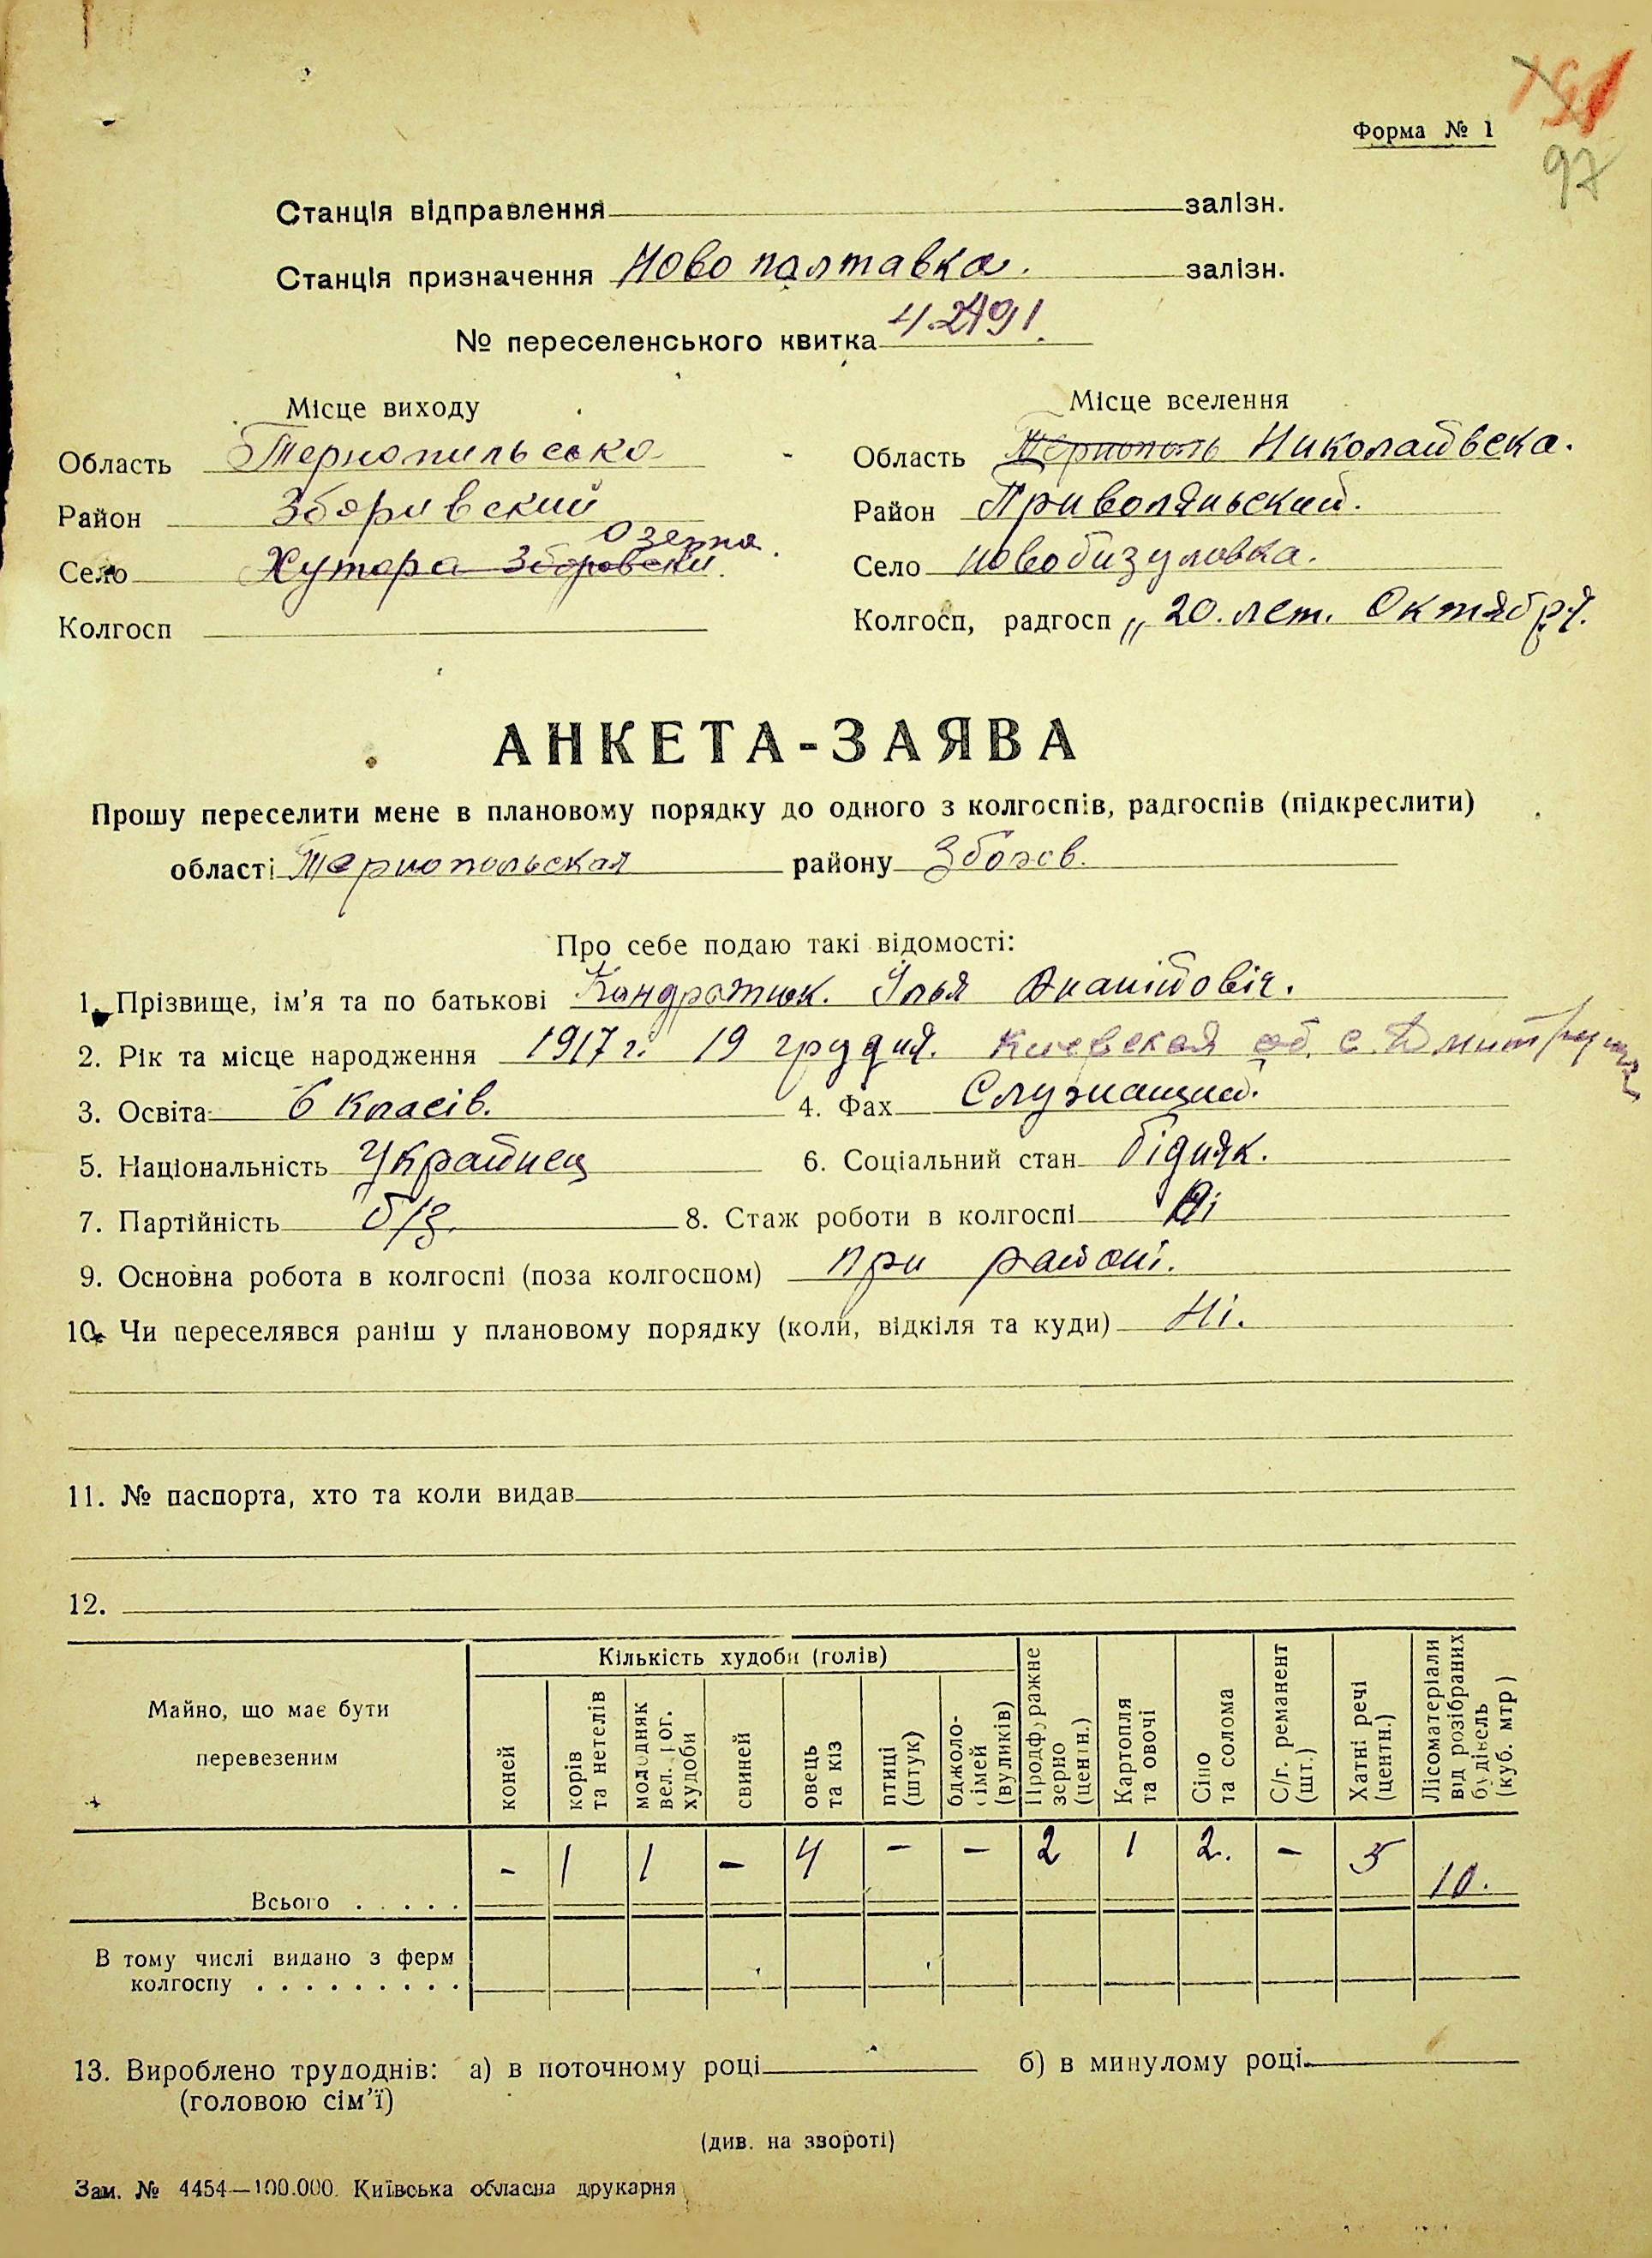 Форма № 1
97
Станція відправлення залізн.
Станція призначення Ново палтавка. залізн.
№ переселенського квитка
Місце виходу
Місце вселення
Область Тернопильсько
Область Тернополь Николаивска.
Район Зборивский
Район Приволянський.
Озерна
Село Хутора Зборовски.
Село новобизуловка.
Колгосп
Колгосп, радгосп „20. лет. Октября.
АНКЕТА-ЗАЯВА
Прошу переселити мене в плановому порядку до одного з колгоспів, радгоспів (підкреслити)
області Тернопольская району Зборов.
Про себе подаю такі відомості:
1. Прізвище, ім'я та по батькові Кондратюк. Илья
2. Рік та місце народження 1917 г. 19 грудня. Киевская об. с.
3. Освіта 6 класів. 4. Фах Служащий.
5. Національність Украйнец 6. Соціальний стан бідняк.
7. Партійність б/п. 8. Стаж роботи в колгоспі Ні
9. Основна робота в колгоспі (поза колгоспом) при районі.
10. Чи переселявся раніш у плановому порядку (коли, відкіля та куди) Ні.
11. № паспорта, хто та коли видав
12.
Майно, що має бути перевезеним
Кількість худоби (голів)
коней
корів та нетелів
молодняк вел. рог. худоби
свиней
овець та кіз
птиці (штук)
бджоло-сімей (вуликів)
Продфуражне зерно (центн.)
Картопля та овочі
Сіно та солома
С/г. реманент (шт.)
Хатні речі (центн.)
Лісоматеріали від розібраних будівель (куб. мтр)
Всього . . . . . - 1 1 - 4 - - 2 1 2. - 5 10.
В тому числі видано з ферм
колгоспу . . . . . . . . .
13. Вироблено трудоднів: а) в поточному році б) в минулому році
(головою сім'ї)
(див. на звороті)
Зам. № 4454—100.000. Київська обласна друкарня